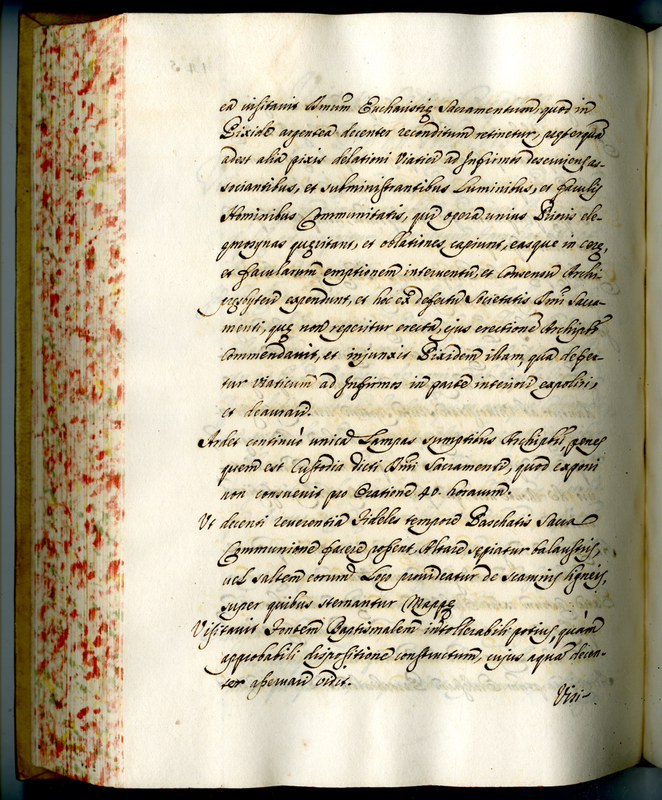 ea visitavit Smũm Eucharistię Sacramentum, quod in
Pixide argentea decenter reconditum retinetur, pręterquã
adest alia pixis delationi Viatici ad Infirmos deserviens as-
sociantibus, et subministrantibus Luminibus, et faculis
Hominibus Communitatis, qui opera unius Prioris ele-
gmosynas quęritant, et oblationes capiunt, easque in cerę,
et facularum emptionem interventu, et consensu Archi-
pręsbyteri expendunt, et hoc ex defectu Societatis Smi Sacra-
menti, quę non reperitur erecta, ejus erectionẽ Archipbro
Commendavit, et injunxit Pixidem illam, qua defer-
tur Viaticum ad Infirmos in parte interiori expoliri,
et deaurari.
Ardet continuò unica Lampas sumptibus Archipbri penes
quem est Custodia dicti Smi Sacramenti, quod exponi
non consuevit pro Oratione 40. horarum.
Ut decenti reverentia Fideles tempore Paschatis Sacra
Communionẽ facere possent Altare sepiatur balaustris,
vel saltem eorum Loco provideatur de scamnis ligneis,
super quibus sternantur Mappę
Visitavit Fontem Baptismalem intollerabili potius, quàm
approbabili dispositione constructum, cujus aqua decen-
ter asservari vidit.
Visi-